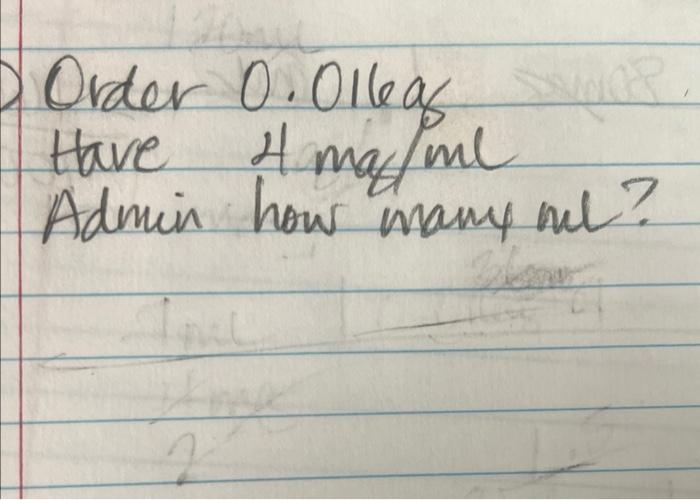 Order 0.016g
Have 4 mg/ml
Admin how many ml?
2